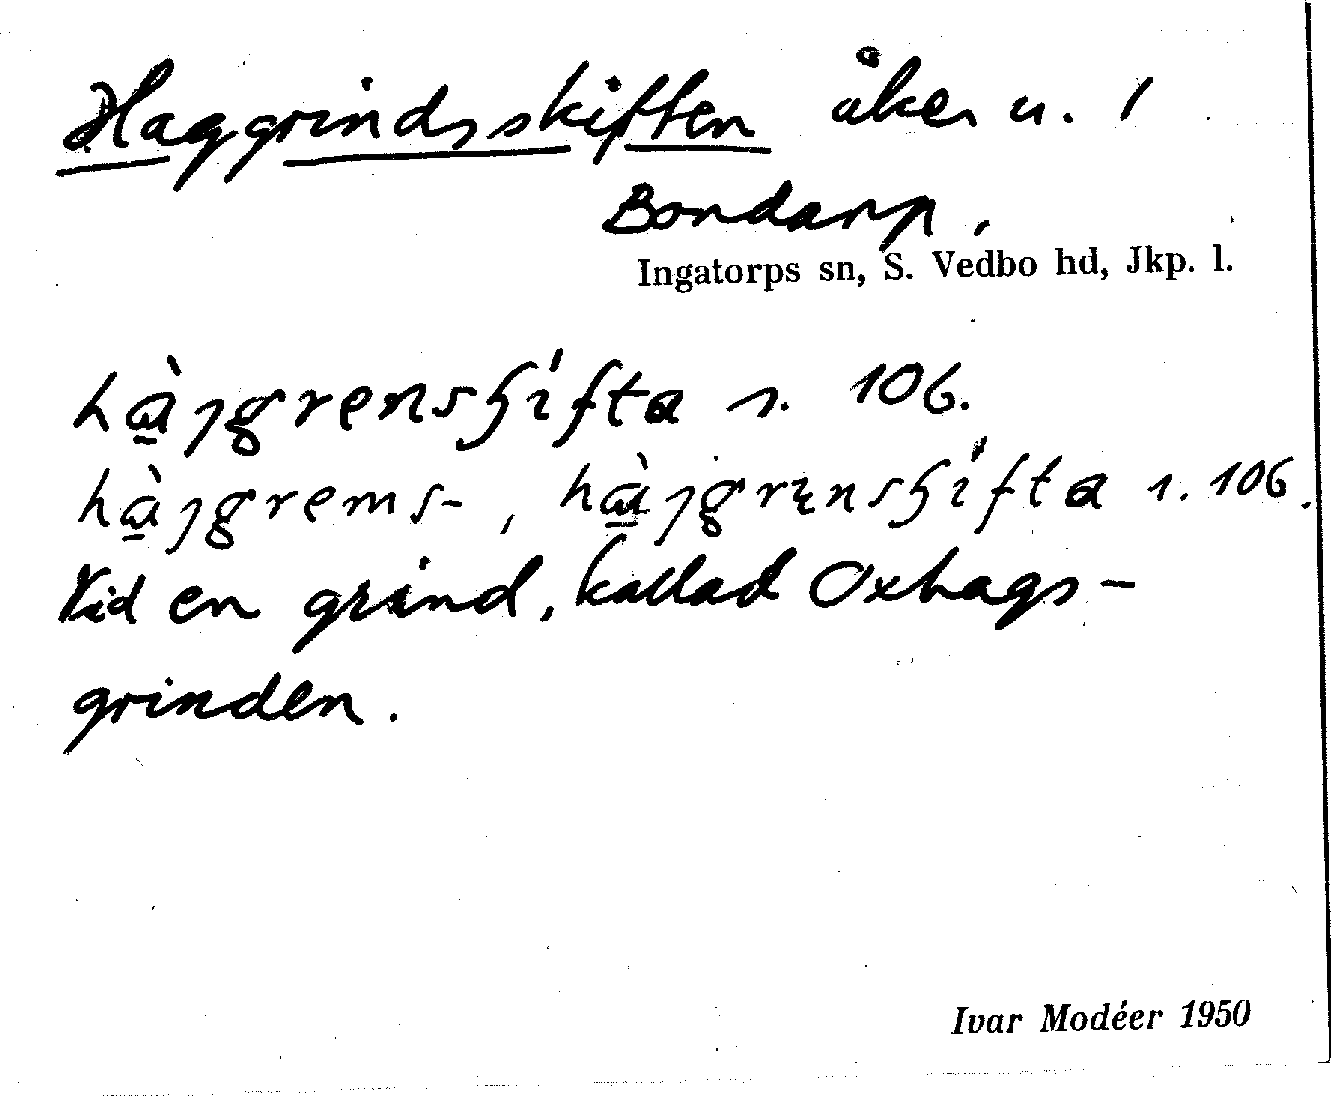 Haggrindsskiften åker u. 1
Bondarp.
Ingatorps sn, S. Vedbo hd, Jkp. l.
s. 106.
s. 106.
Vid en grind, kallad Oxhags-
grinden.
Ivar Modéer 1950